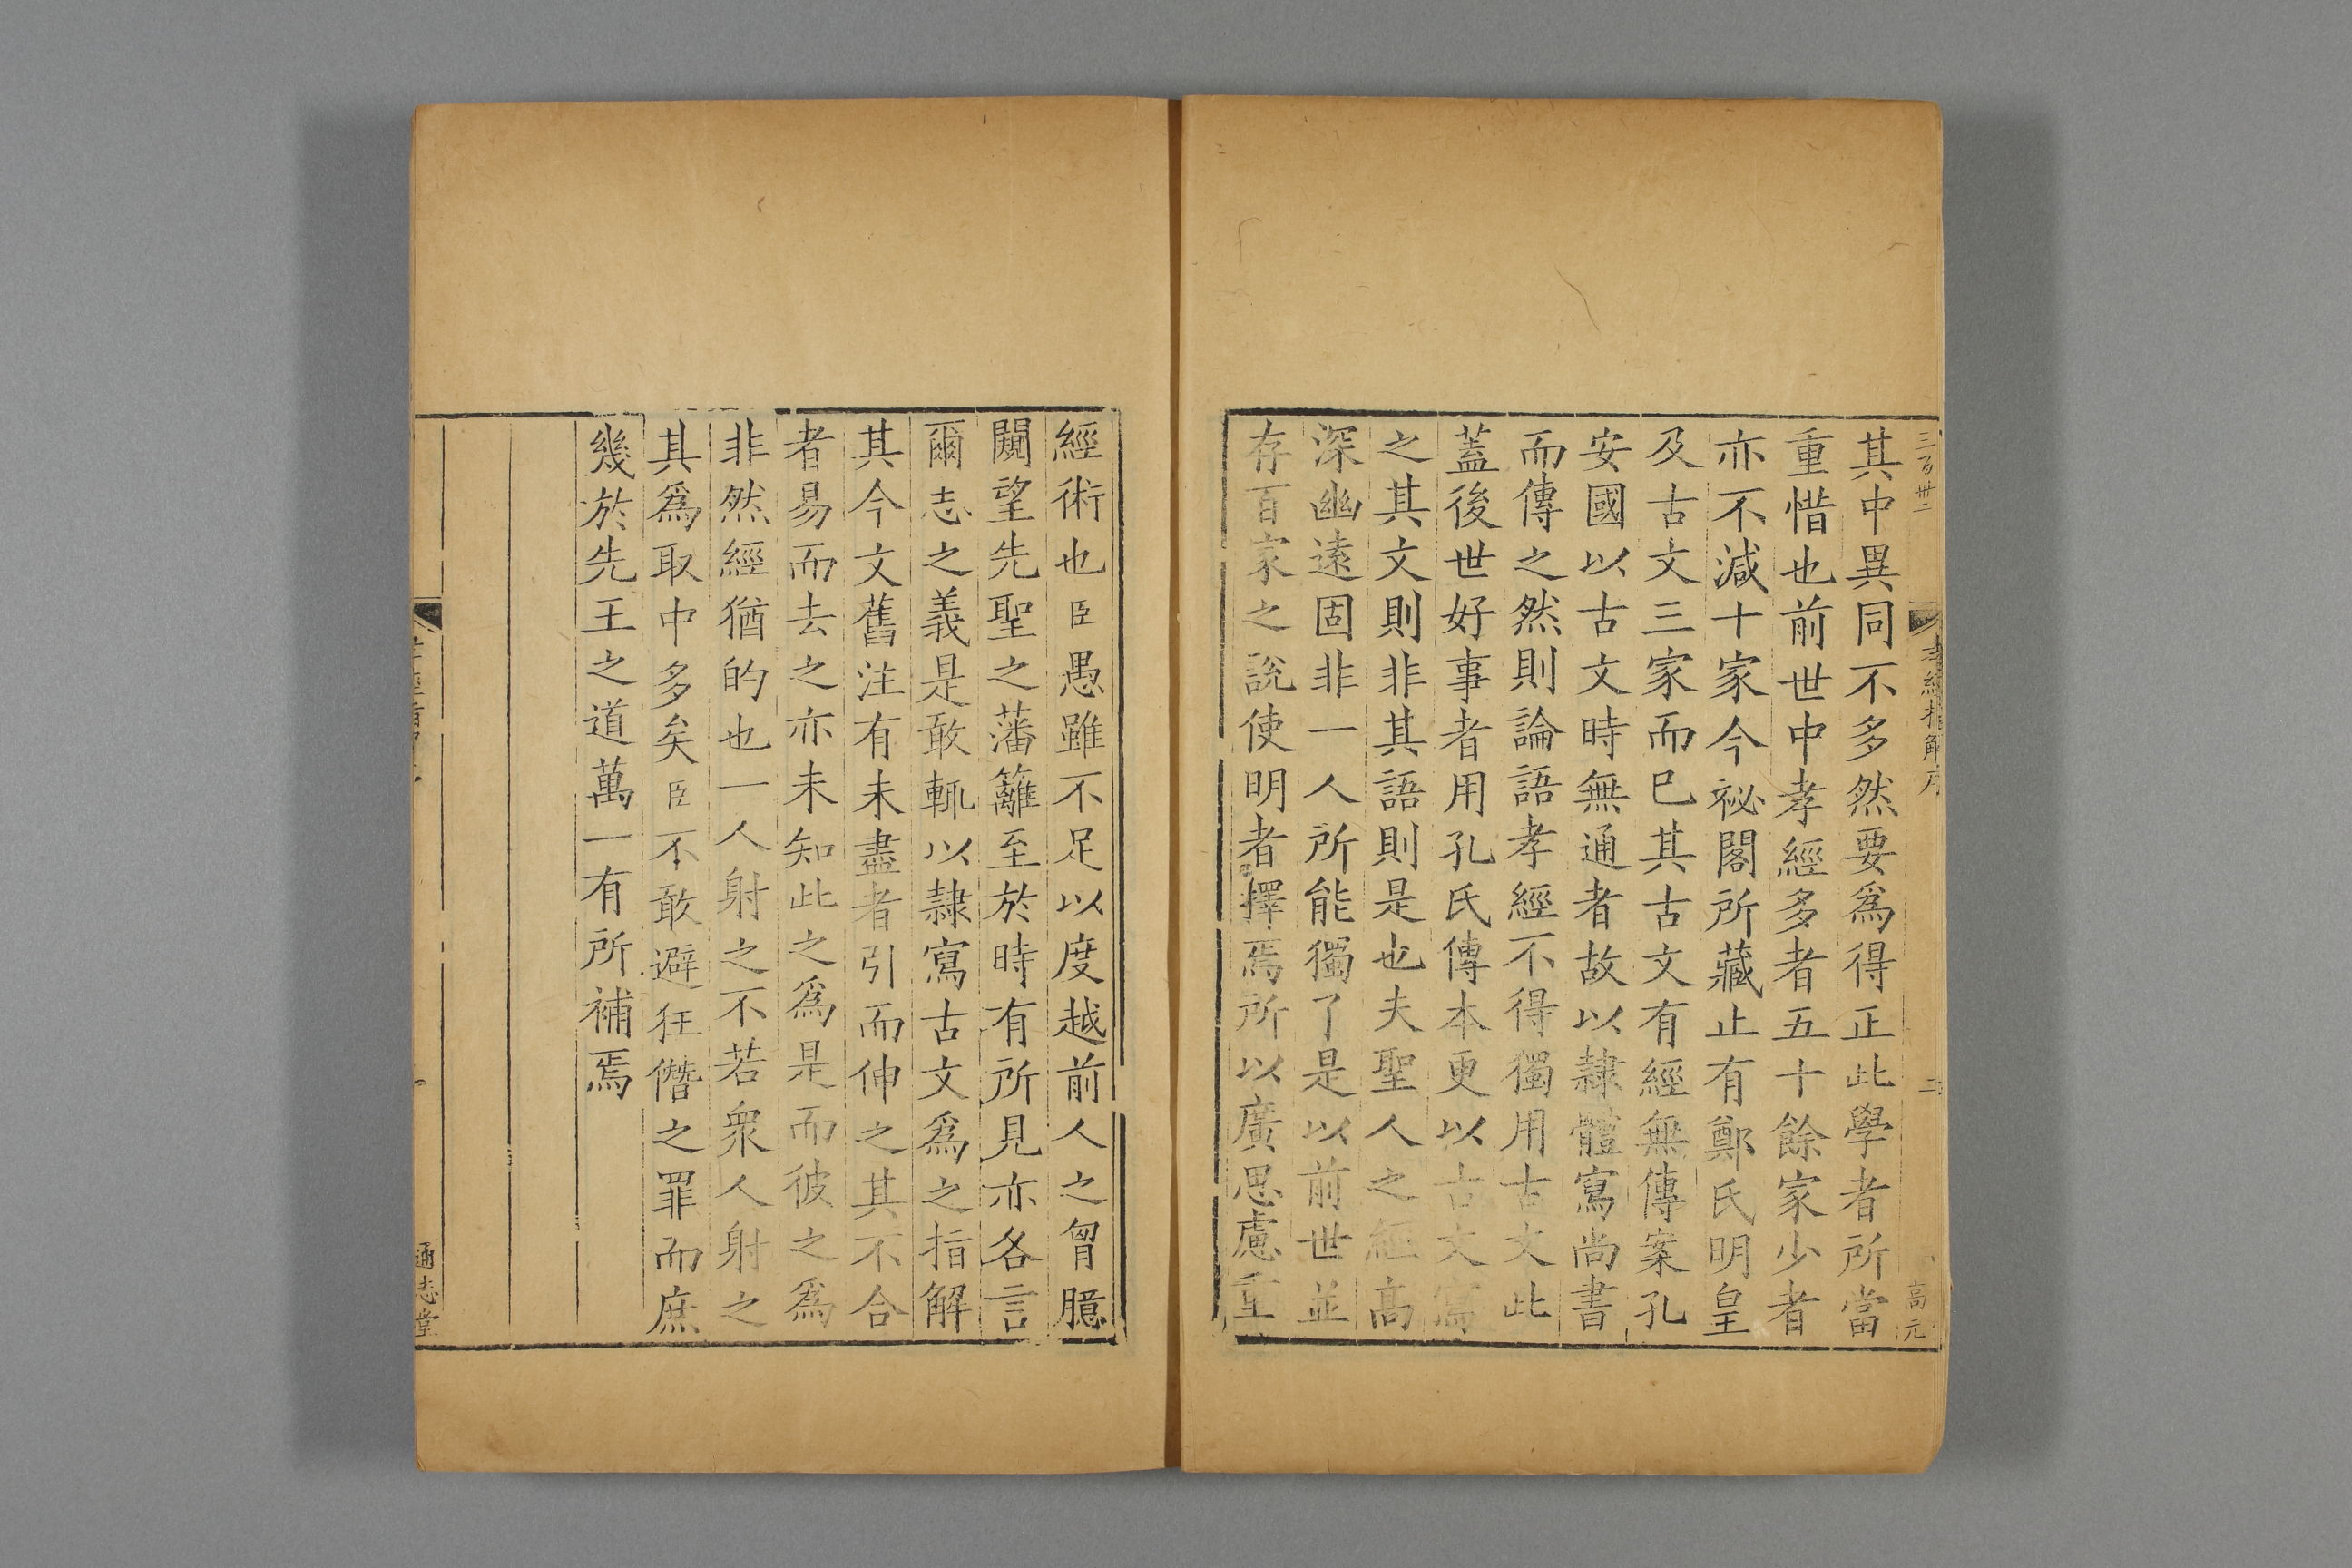 三百卅二
孝經指解序
二
高元
其中異同不多然要爲得正此學者所當
重惜也前世中孝經多者五十餘家少者
亦不減十家今祕閣所藏止有鄭氏明皇
及古文三家而已其古文有經無傳案孔
安國以古文時無通者故以隷體寫尚書
而傳之然則論語孝經不得獨用古文此
蓋後世好事者用孔氏傳本更以古文寫
之其文則非其語則是也夫聖人之經高
深幽遠固非一人所能獨了是以前世並
存百家之說使明者擇焉所以廣思慮重
經術也臣愚雖不足以度越前人之胷臆
闚望先聖之藩籬至於時有所見亦各言
爾志之義是敢輒以隷寫古文爲之指解
其今文舊注有未盡者引而伸之其不合
者易而去之亦未知此之爲是而彼之爲
非然經猶的也一人射之不若衆人射之
其爲取中多矣臣不敢避狂僭之罪而庶
幾於先王之道萬一有所補焉
通志堂